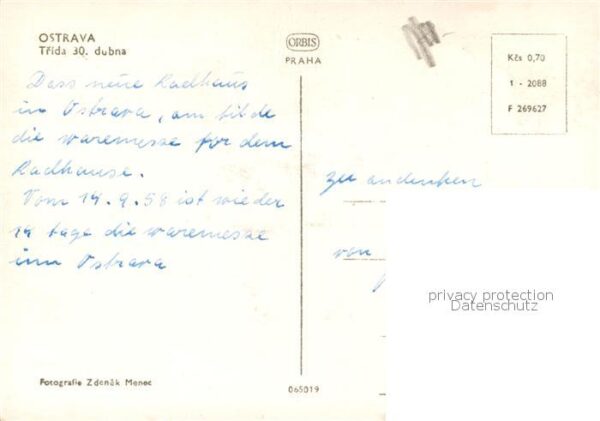 OSTRAVA
Třída 30. dubna
Dass neue Radhaus
in Ostrava, am bilde
die waremesse for dem
Radhause.
Vom 14.9.58 ist wieder
14 tage die waremesse
inn Ostrava
Fotografie Zdeněk Menec
ORBIS
PRAHA
065019
Kčs 0,70
1 - 2088
F 269627
zu andenken
von
privacy protection
Datenschutz